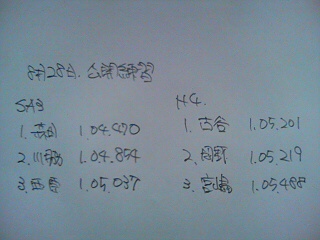 8月28日. 公開練習
SAB
1. 1.04.470
2. 川 1.04.854
3. 1.05.037
H4.
1. 古谷 1.05.201
2. 岡野 1.05.219
3. 宮 1.05.488